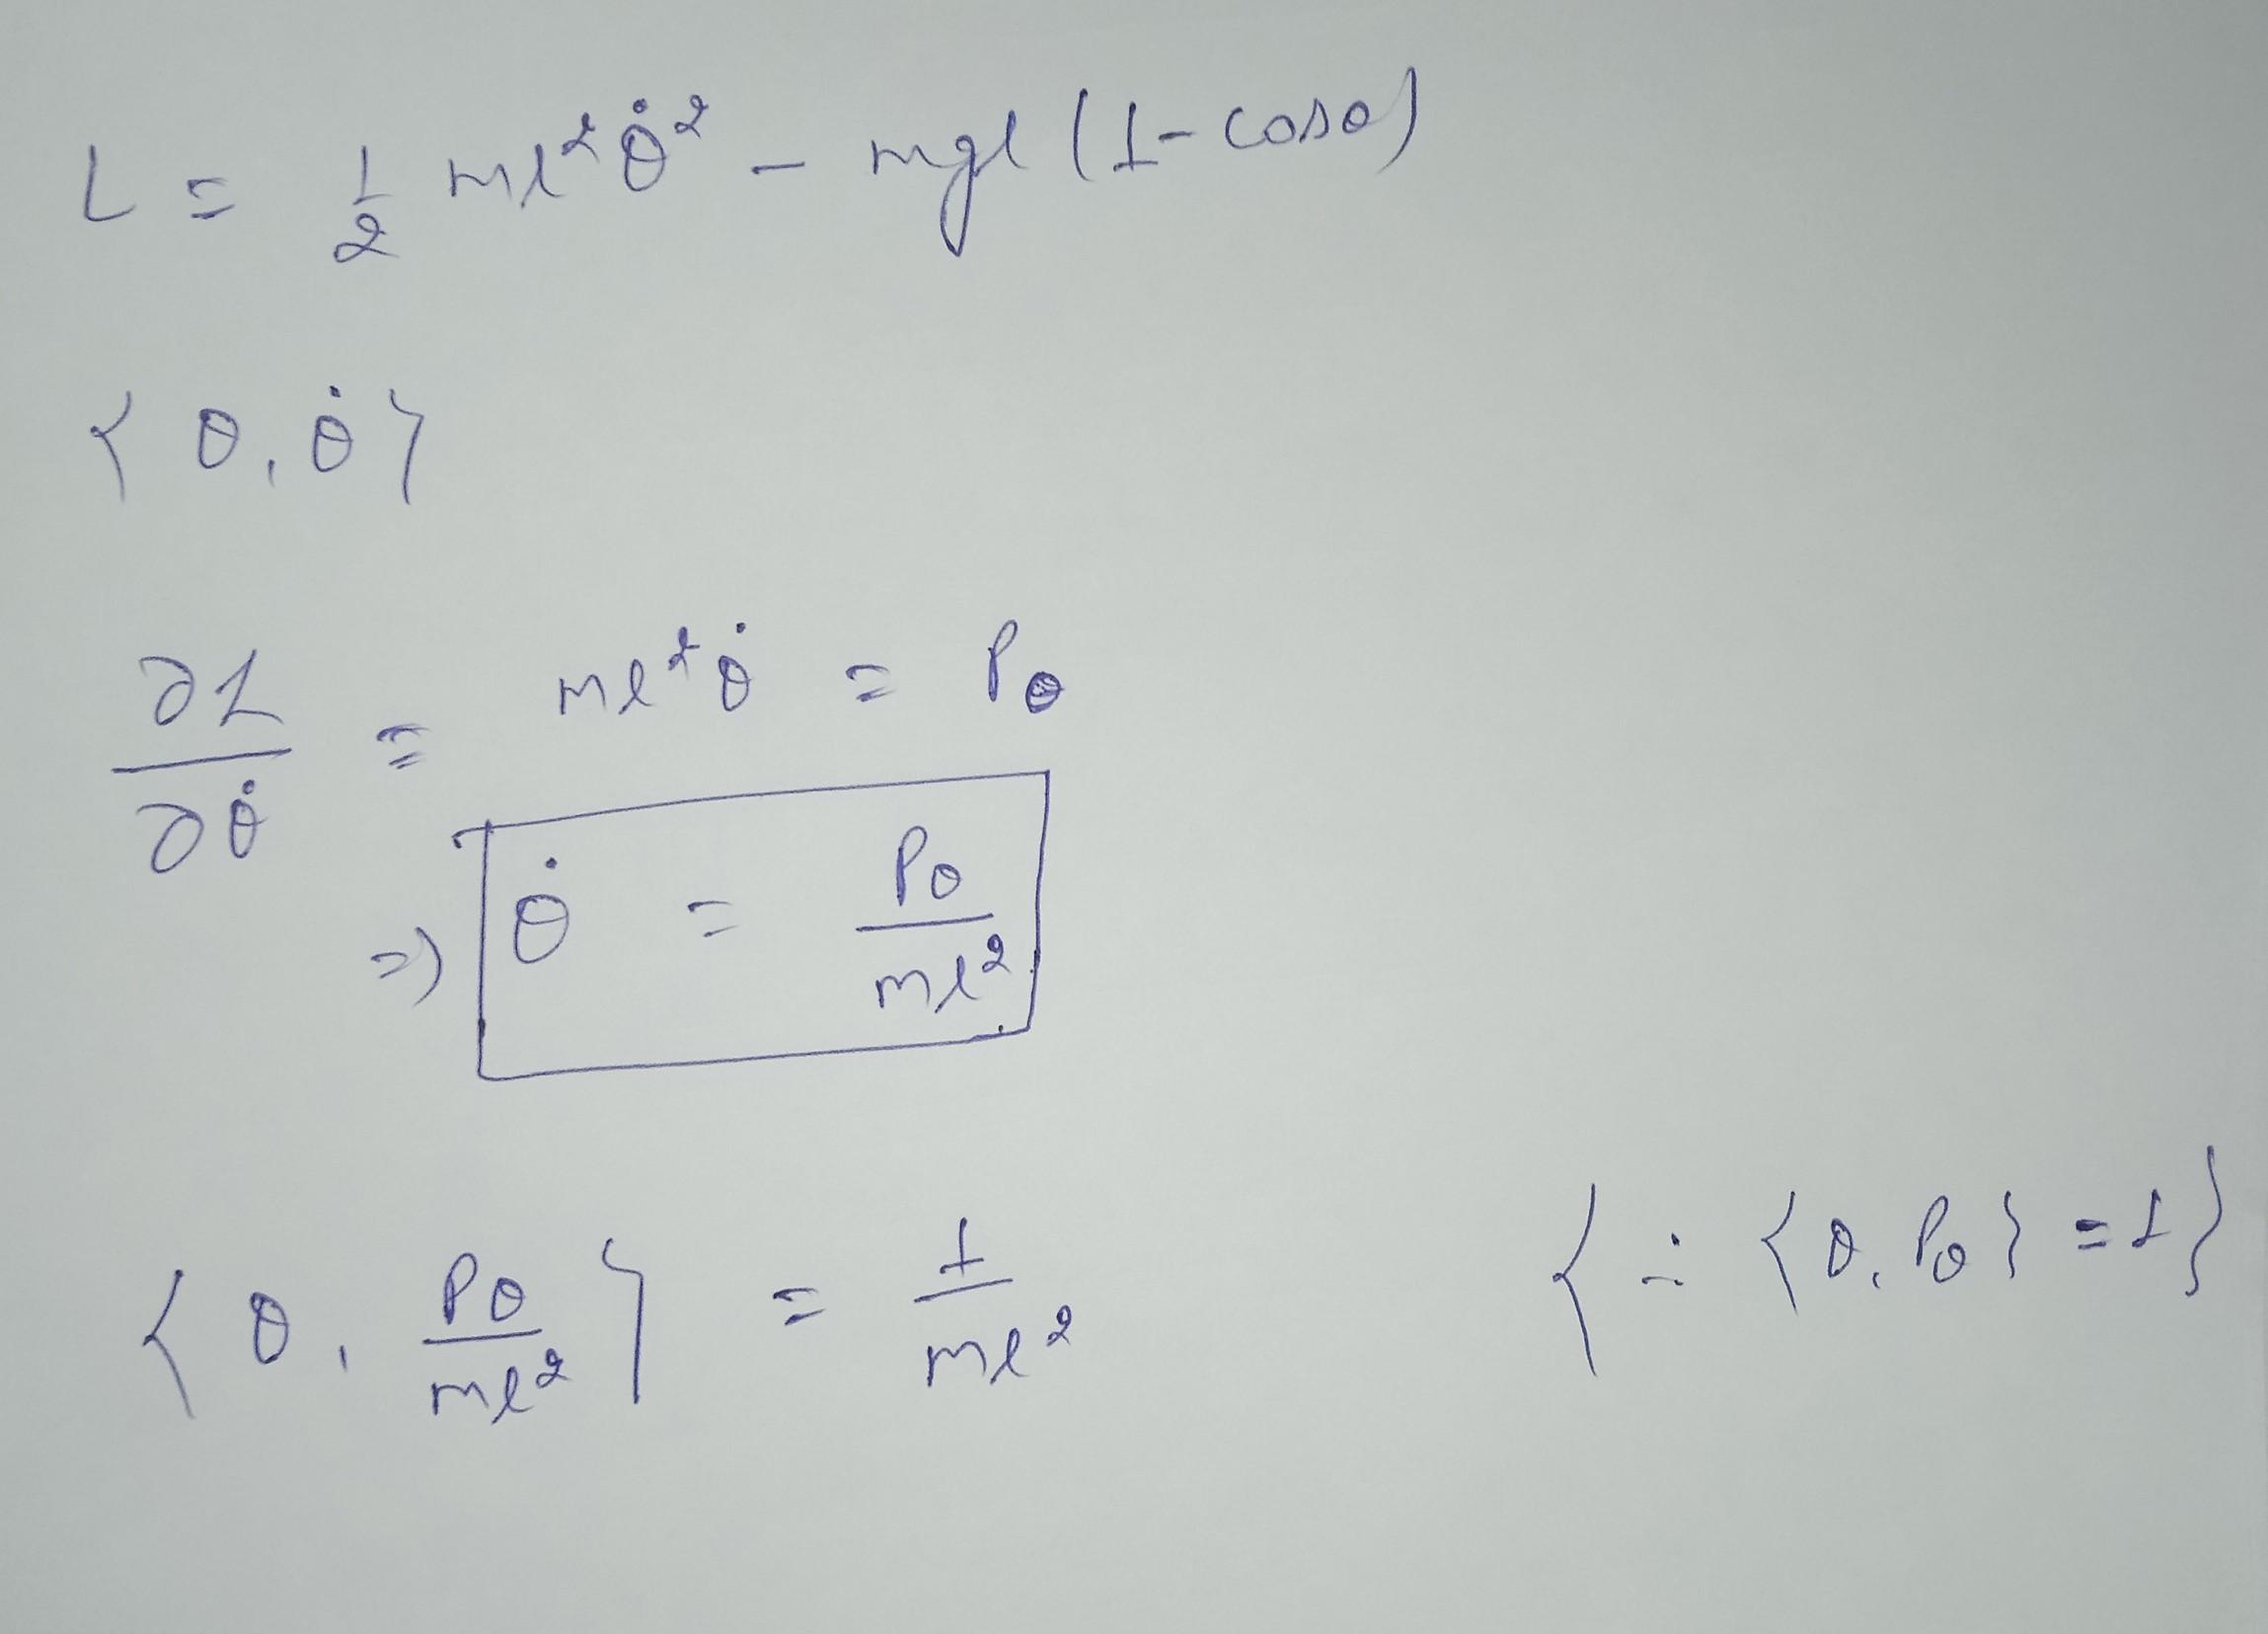 L = 1/2 ml²θ̇² - mgl (1-cosθ)
{θ, θ̇}
∂L/∂θ̇ = ml²θ̇ = Pθ
⇒ θ̇ = Pθ/ml²
{θ, Pθ/ml²} = 1/ml² {∵ {θ, Pθ} = 1}